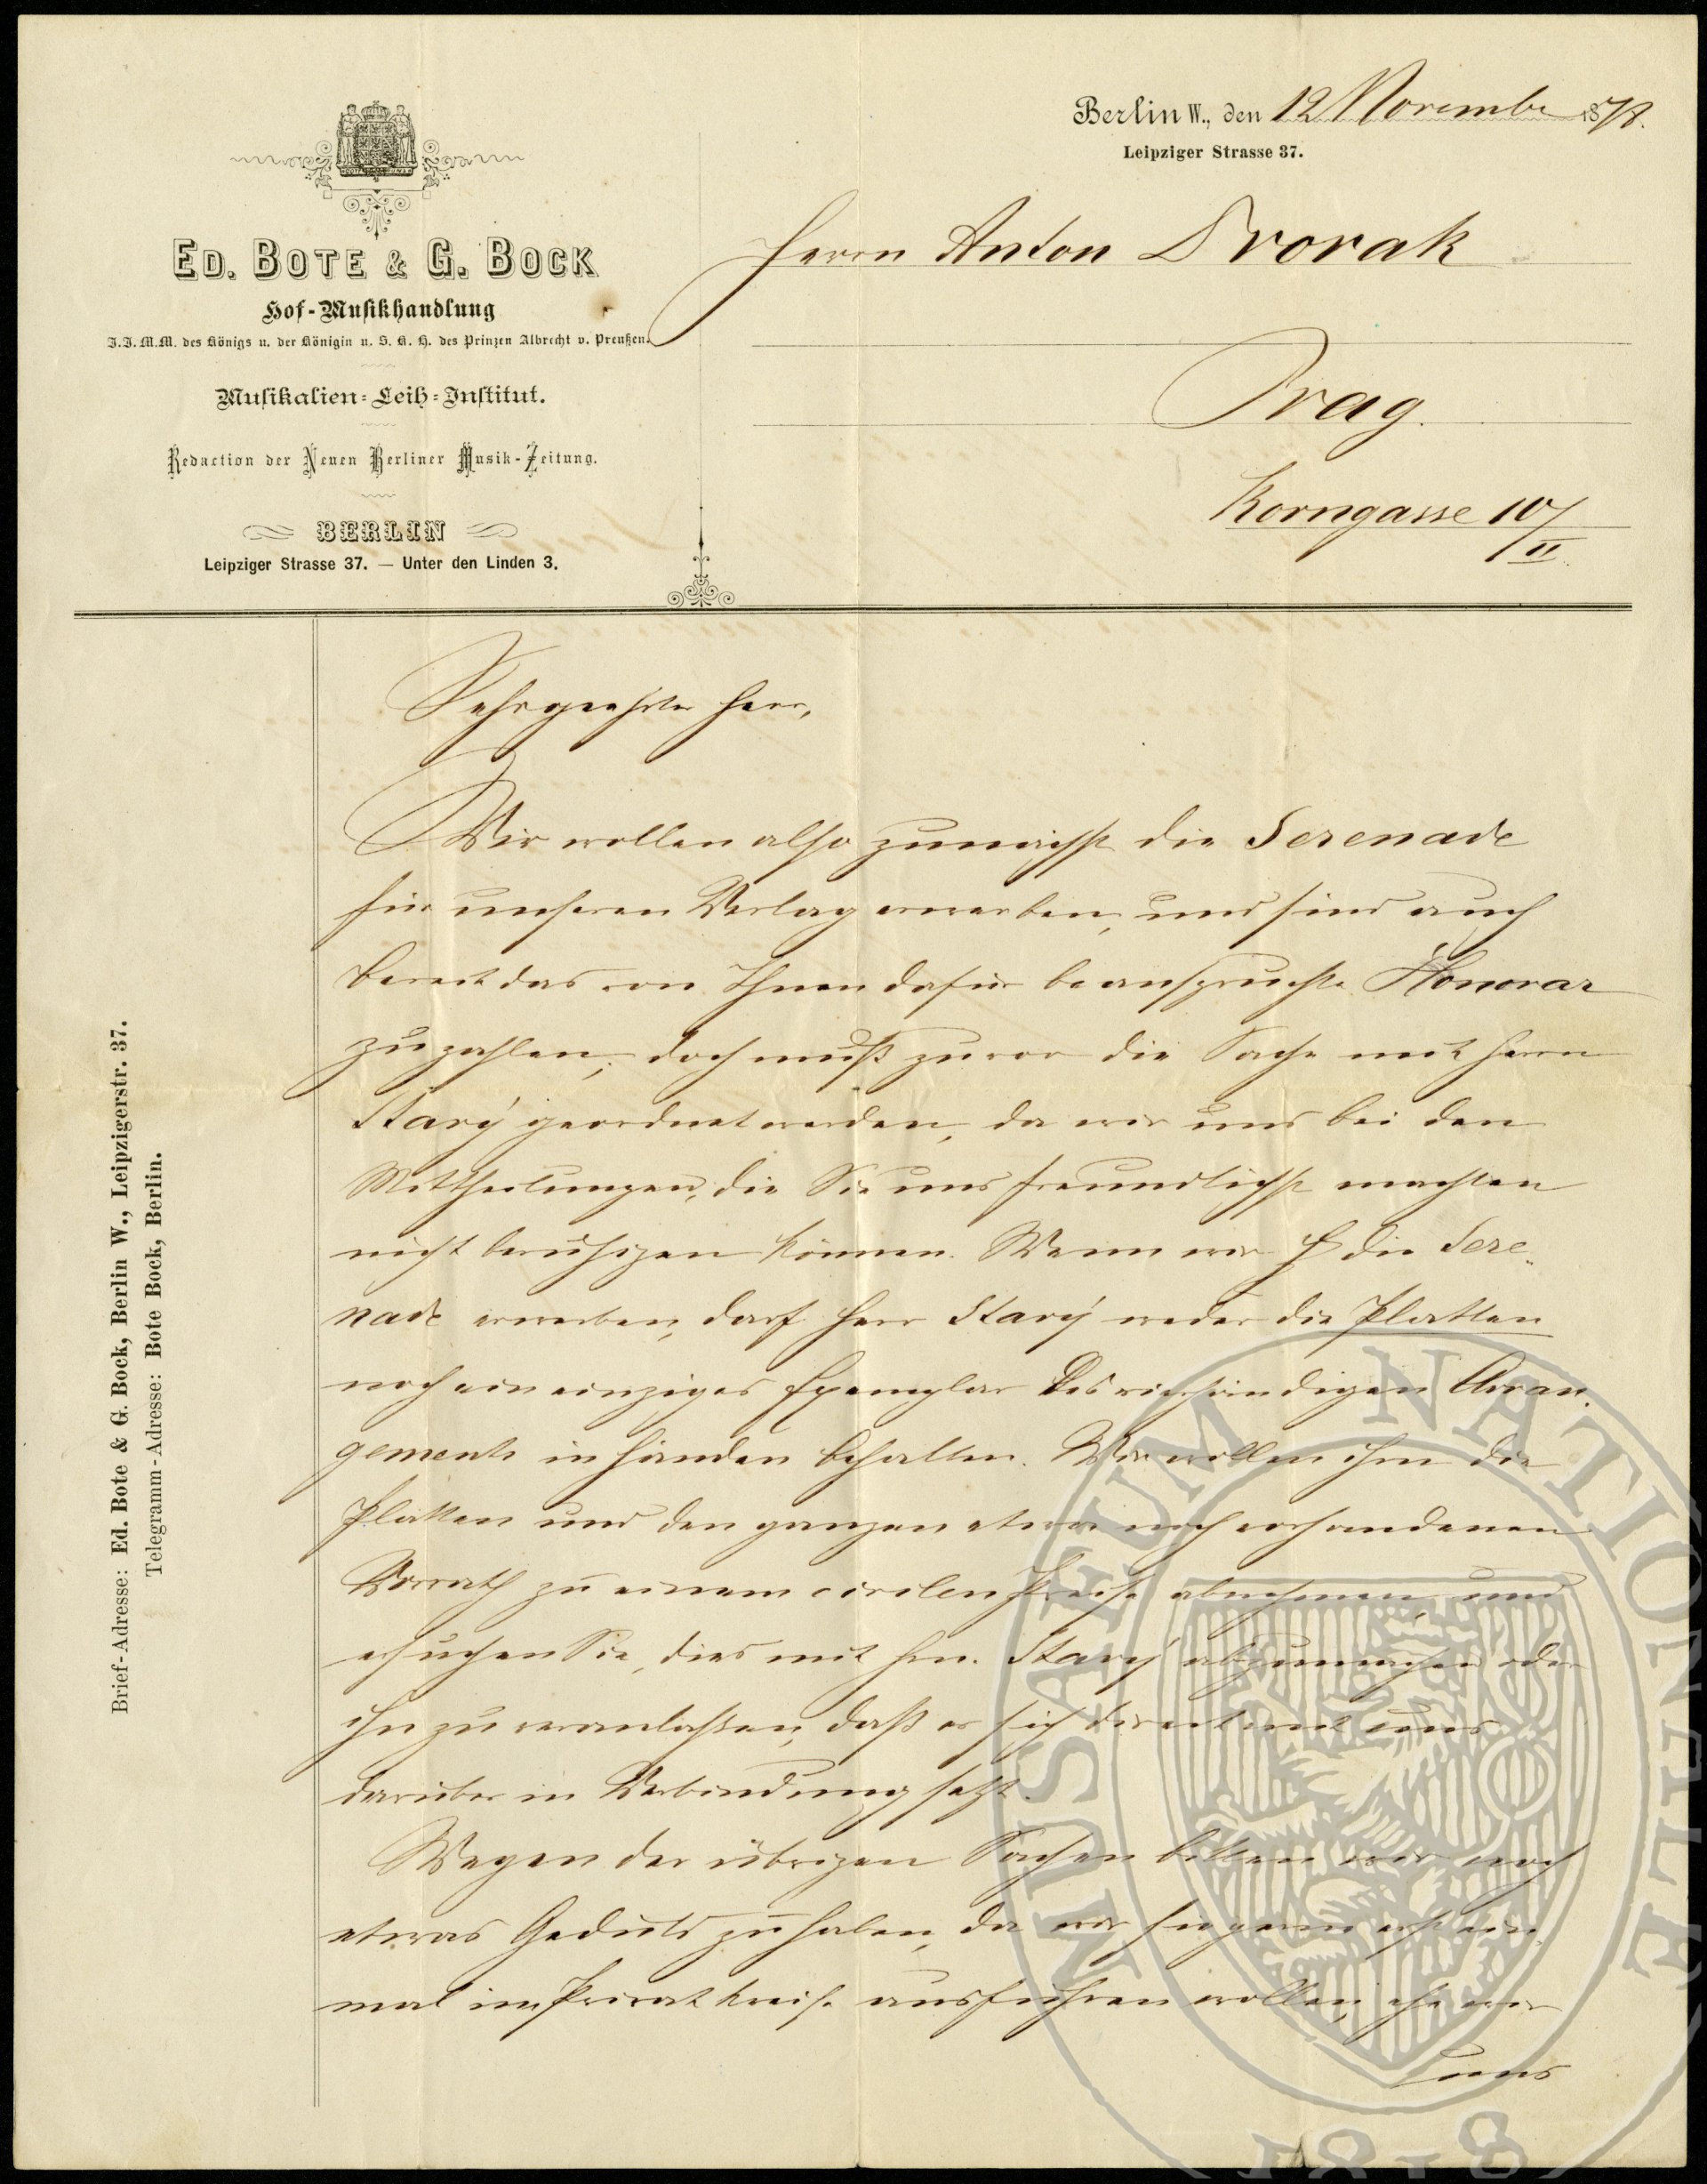 Berlin W., den 12 November 1878.
Leipziger Strasse 37.
ED. BOTE & G. BOCK
Hof-Musikhandlung
I.I.M.M. des Königs u. der Königin u. S. K. H. des Prinzen Albrecht v. Preußen.
Musikalien-Leih-Institut.
Redaction der Neuen Berliner Musik-Zeitung.
BERLIN
Leipziger Strasse 37. — Unter den Linden 3.
Herrn Anton Dvorak
Prag.
Korngasse 10/II.
Brief-Adresse: Ed. Bote & G. Bock, Berlin W., Leipzigerstr. 37.
Telegramm-Adresse: Bote Bock, Berlin.
Sehrgeehrter Herr,
Wir wollen also zunächst die Serenade
für unseren Verlag erwerben, und sind auch
bereit das von Ihnen dafür beanspruchte Honorar
zu zahlen, doch muß zuvor die Sache mit Herrn
Starý geordnet werden, da wir uns bei den
Mittheilungen, die Sie uns freundlichst machten
nicht beruhigen können. Wenn wir die Sere-
nade erwerben, darf Herr Starý weder die Platten
noch ein einziges Exemplar des vierhändigen Arran-
gements in Händen behalten. Wir wollen ihm die
Platten und den ganzen etwa noch vorhandenen
Vorrath zu einem civilen Preise abnehmen, und
ersuchen Sie, dies mit Hrn. Starý abzumachen oder
ihn zu veranlaßen, daß er sich direct mit uns
darüber in Verbindung setzt.
Wegen der übrigen Sachen bitten wir noch
etwas Geduld zu haben, da wir sie gern erst ein-
mal im Privatkreise ausführen wollen, ehe wir
uns
MUSAEUM NATIONALE
1818